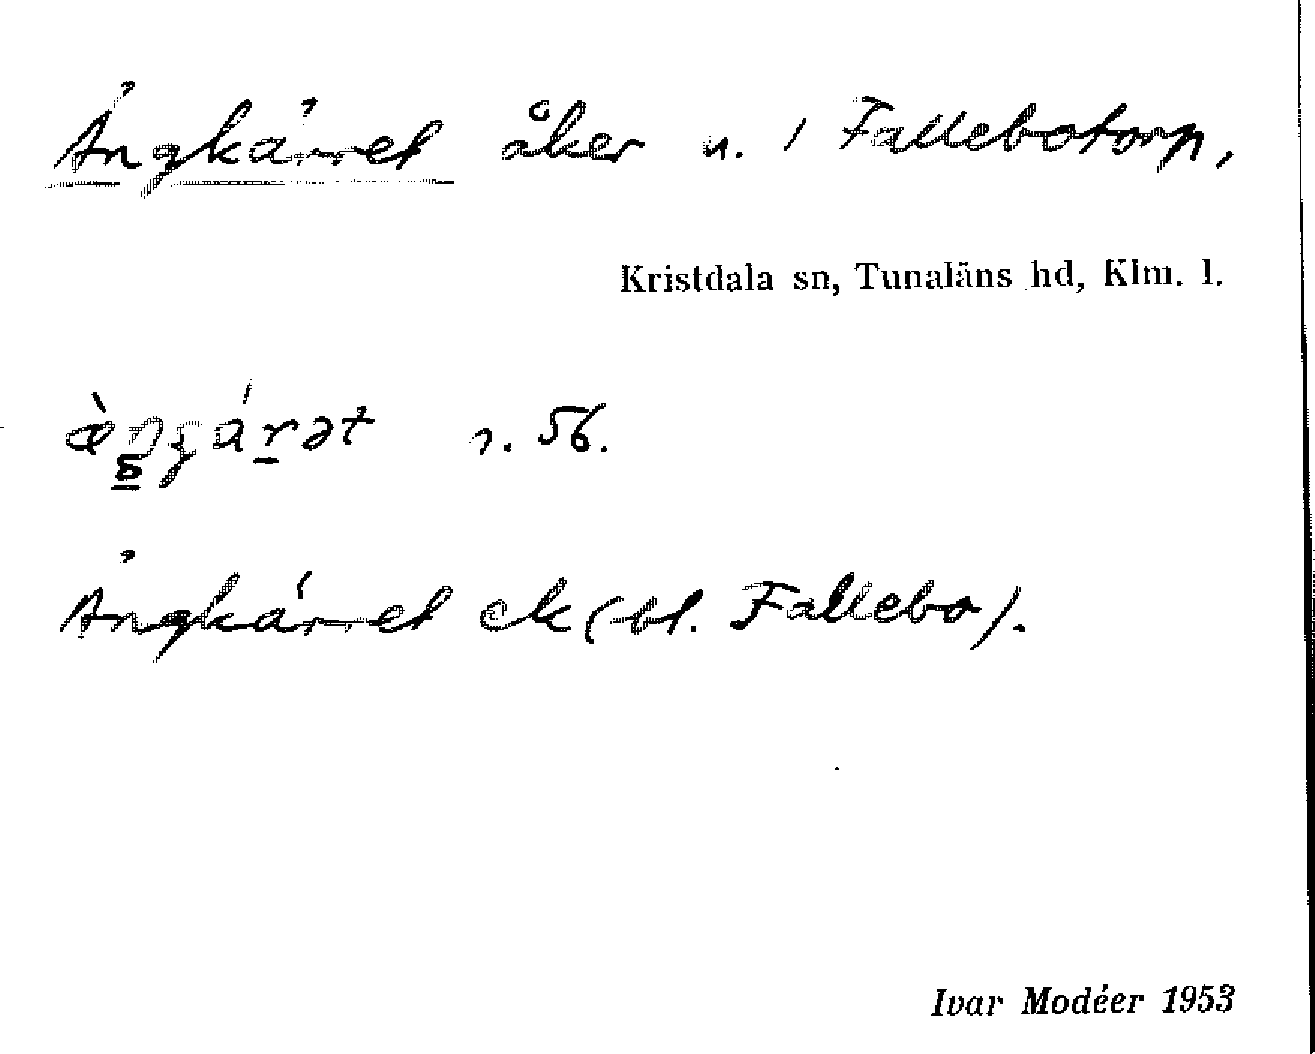 Ängkärret åker u. / Fallebotorp,
Kristdala sn, Tunaläns hd, Klm. l.
s. 56.
Ängkärret ek (bl. Fallebo).
Ivar Modéer 1953